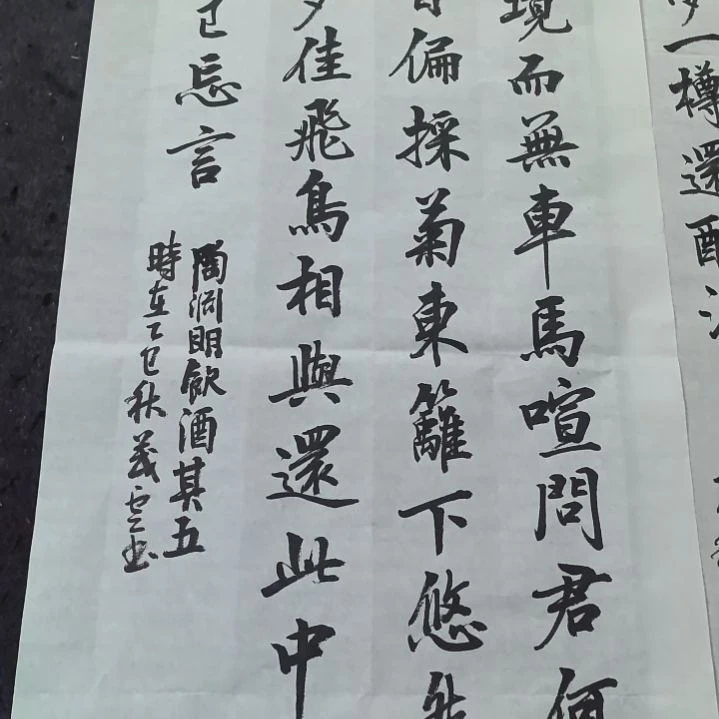 一樽還酌
境而無車馬喧問君何
自偏採菊東籬下悠然
夕佳飛鳥相與還此中
已忘言
陶淵明飲酒其五
時在乙巳秋義雲書